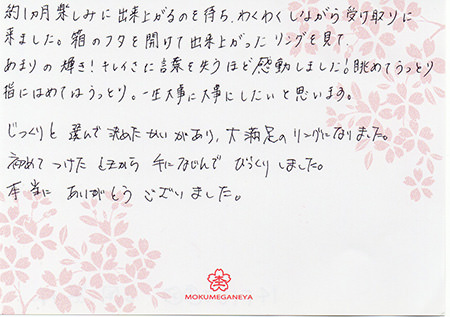 約1ヵ月楽しみに出来上がるのを待ち、わくわくしながら受け取りに
来ました。箱のフタを開けて出来上がったリングを見て
あまりの輝き!キレイさに言葉を失うほど感動しました!眺めてうっとり
指にはめてはうっとり。一生大事に大事にしたいと思います。
じっくりと選んで決めたかいがあり、大満足のリングになりました。
初めてつけた時から手になじんでびっくりしました。
本当にありがとうございました。
MOKUMEGANEYA